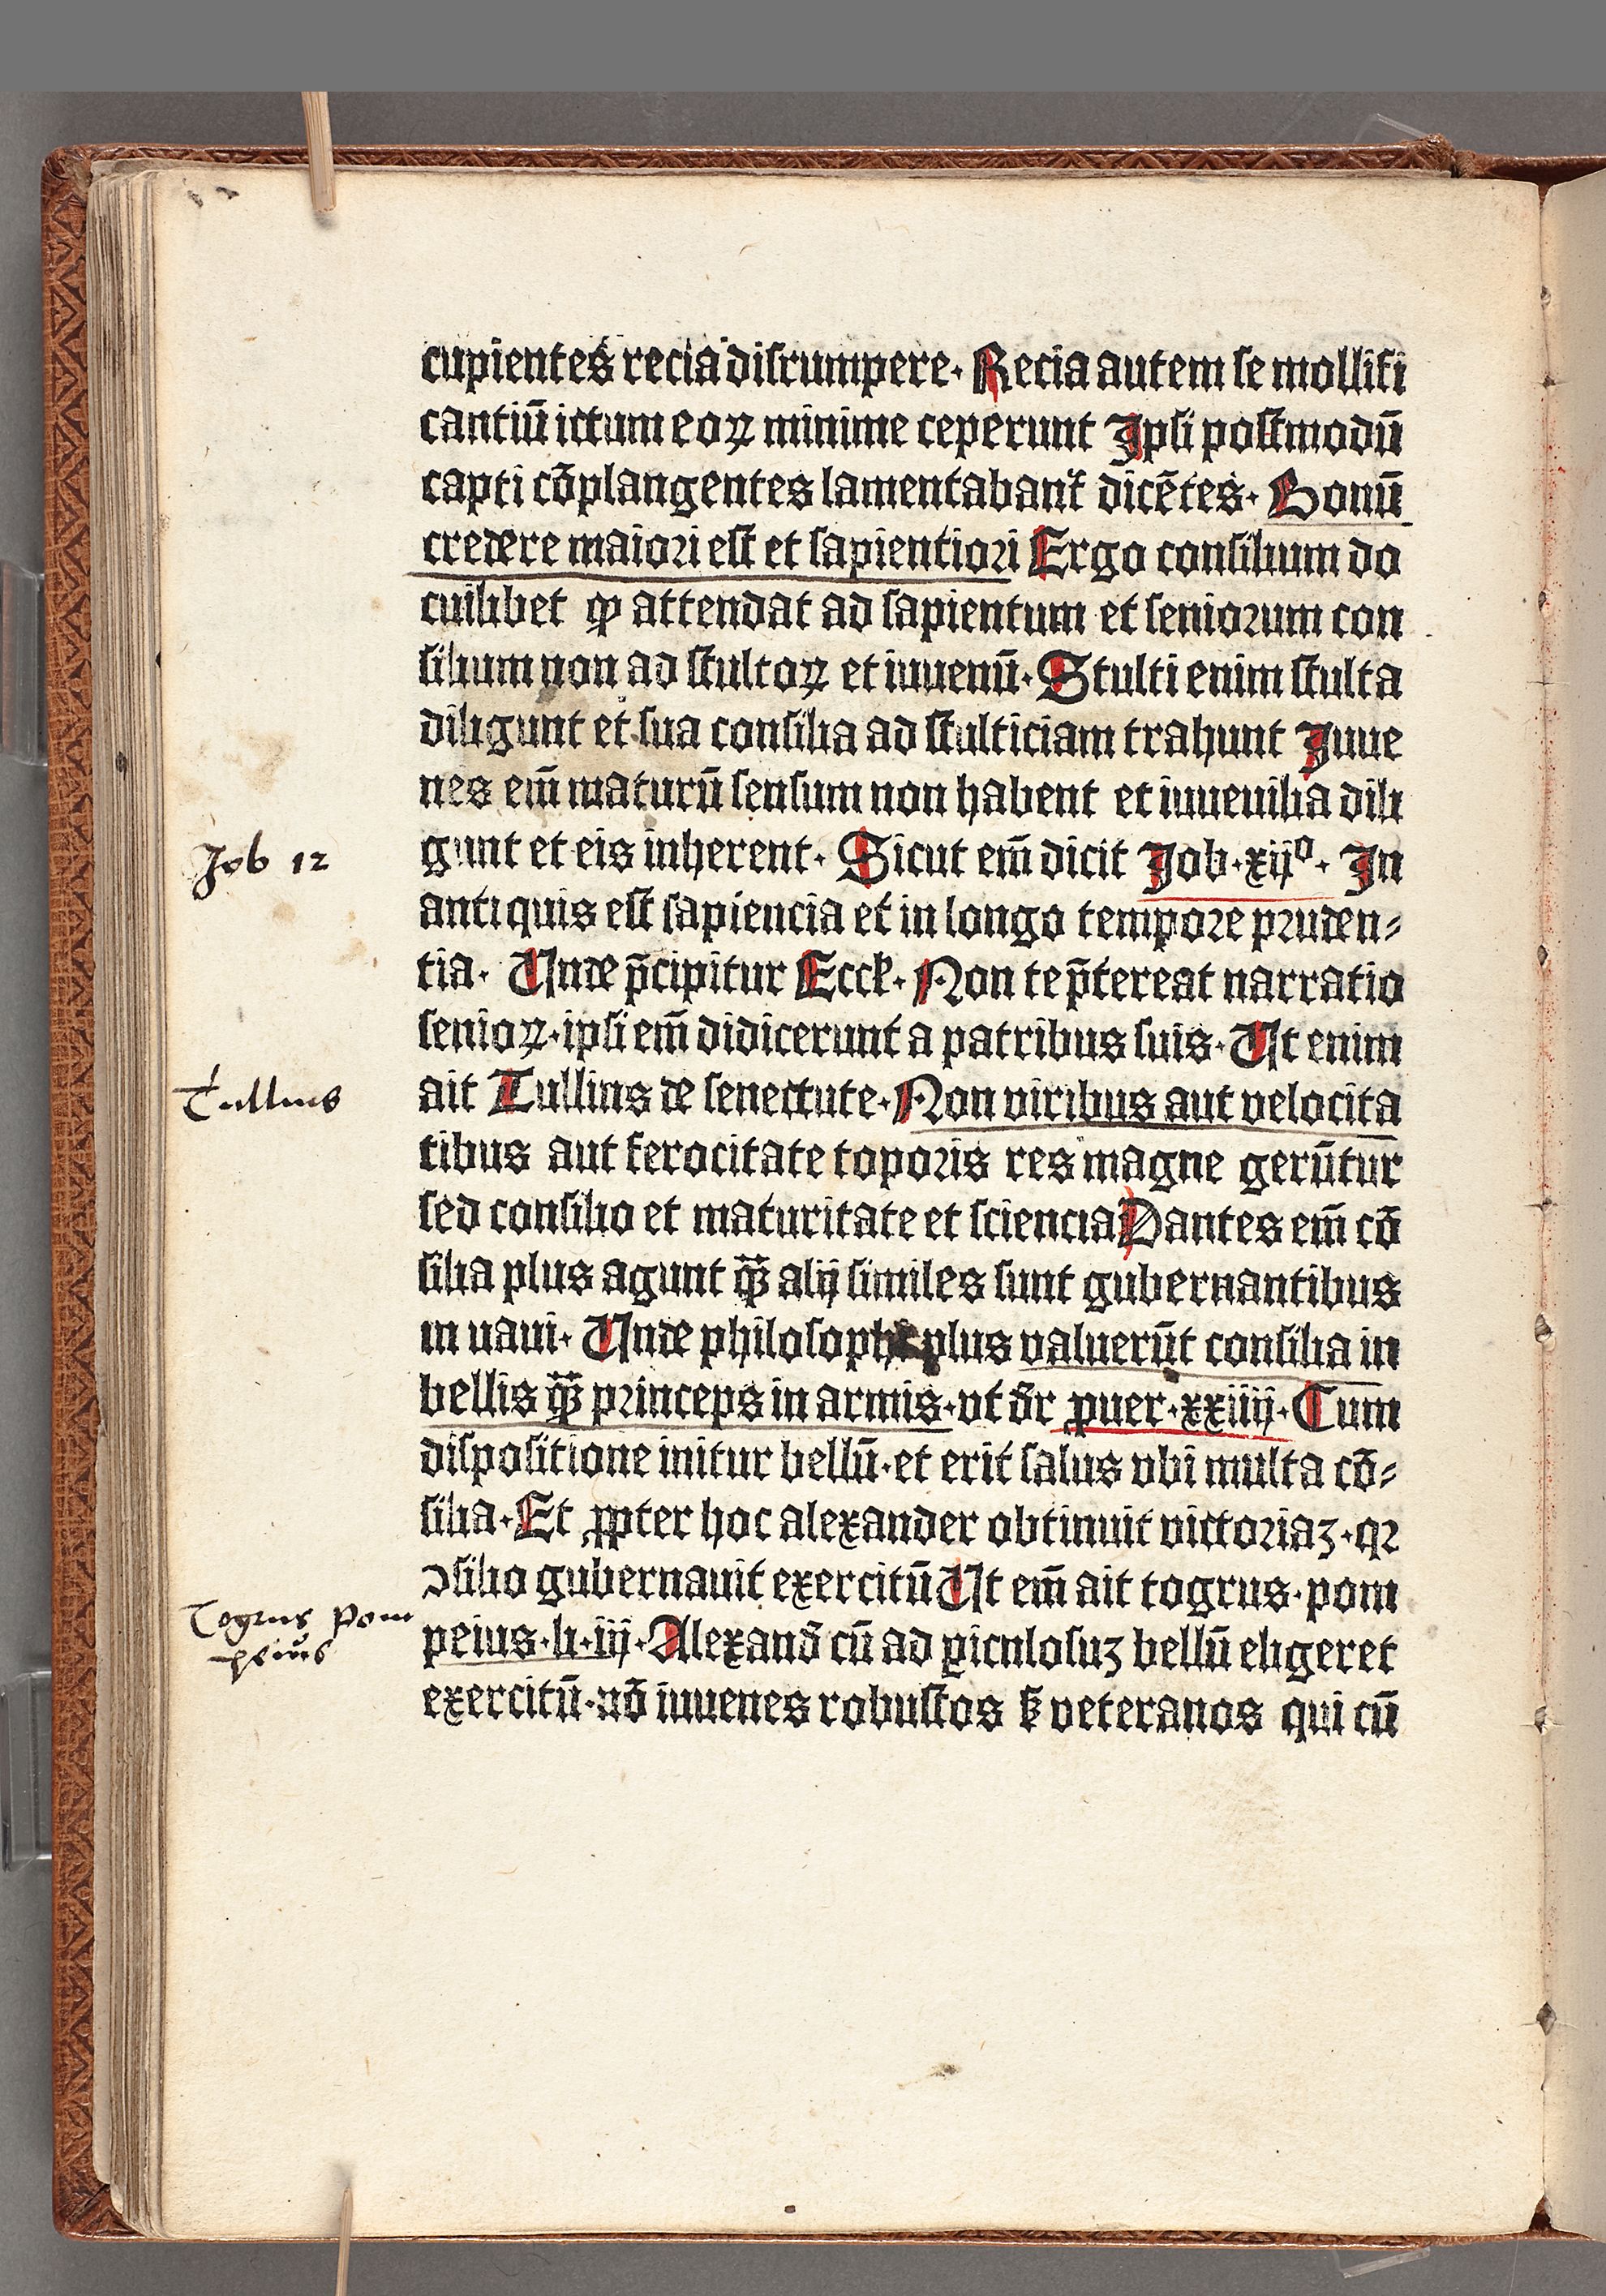 cupientes recia disrumpere. Recia autem se mollifi
cantiū ictum eoꝝ minime ceperunt Ipsi postmodū
capti cōplangentes lamentabant̃ dicētes. Bonū
credere maiori est et sapientiori Ergo consilium do
cuilibet ꝙ attendat ad sapientum et seniorum con
silium non ad stultoꝝ et iuuenū. Stulti enim stulta
diligunt et sua consilia ad stulticiam trahunt Iuue
nes em̄ maturū sensum non habent et iuueuilia dili
Job 12
gunt et eis inherent. Sicut em̄ dicit Job.xijº. In
antiquis est sapiencia et in longo tempore pruden⸗
tia. Unde p̄cipitur Eccꝉ. Non te p̄tereat narratio
senioꝝ.ipsi em̄ didicerunt a patribus suis. Ut enim
Tullius
ait Tullius de senectute. Non viribus aut velocita
tibus aut ferocitate toporis res magne gerūtur
sed consilio et maturitate et sciencia Dantes em̄ cō
silia plus agunt qȝ̄ alij similes sunt gubernantibus
in uaui. Unde philosophi plus valuerūt consilia in
bellis qȝ̄ princeps in armis.vt dr̄ ꝓuer.xxiiij. Cum
dispositione initur bellū.et erit salus vbi multa cō⸗
silia. Et ꝓpter hoc alexander obtinuit victoriaʒ.qꝛ
ꝯsilio gubernauit exercitū Ut em̄ ait togrus.pom
Togrus Pom
peius
peius.li.iij. Alexand̄ cū ad ꝑiculosuʒ bellū eligeret
exercitū.nō iuuenes robustos sꝫ veteranos qui cū